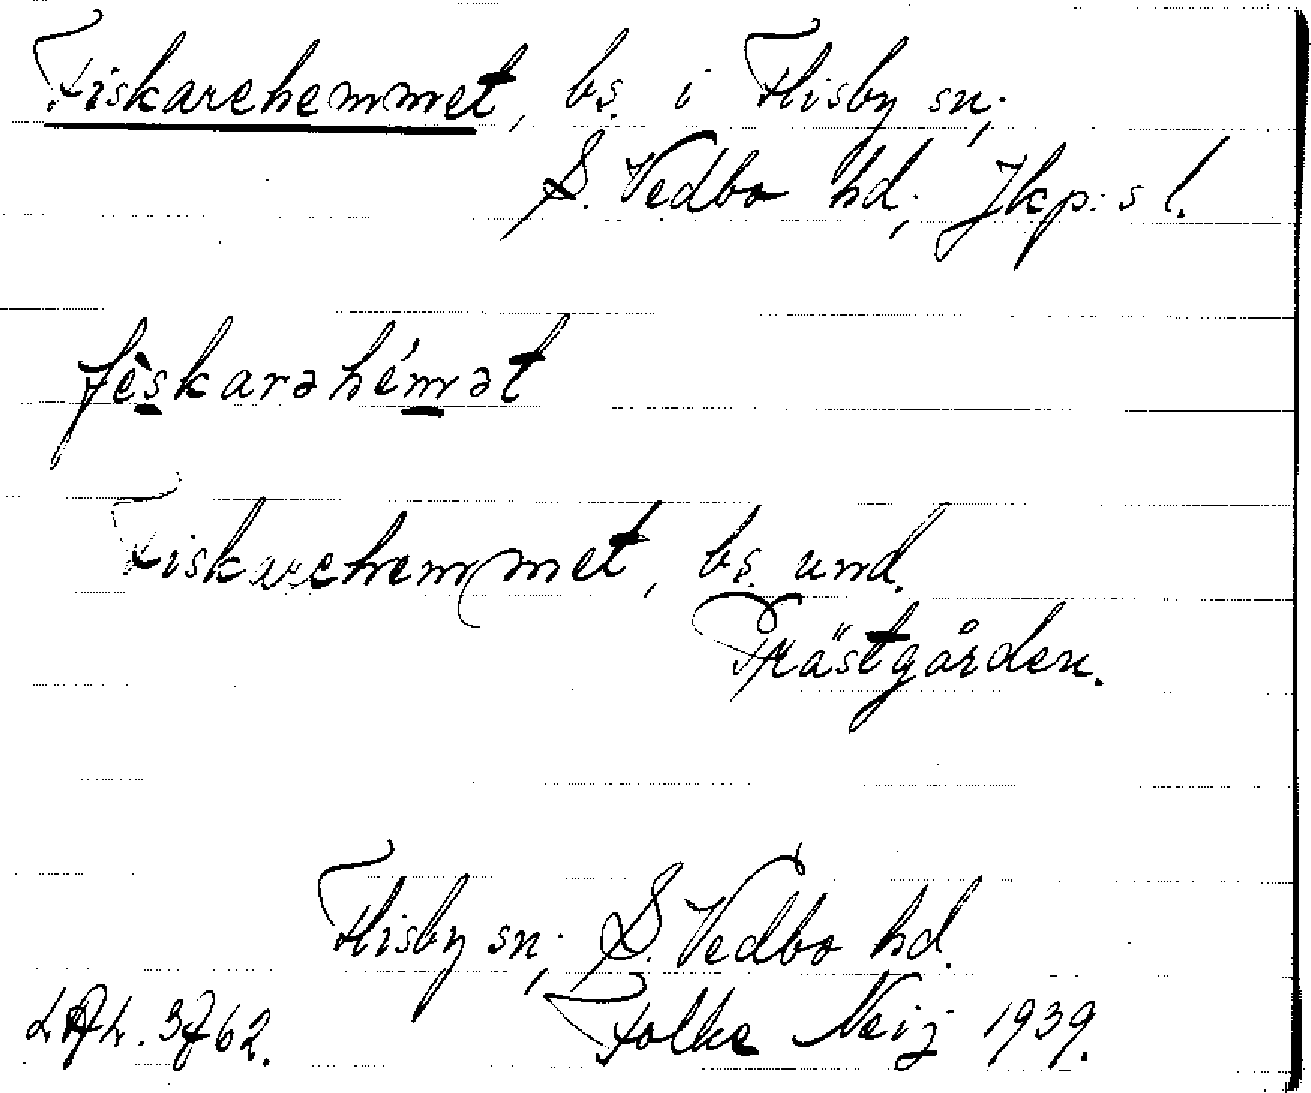 Fiskarehemmet, bs. i Flisby sn;
S. Vedbo hd; Jkp:s l.
fèskarəhémət
Fiskarehemmet, bs. und.
Prästgården.
Flisby sn; S. Vedbo hd.
Folke Neij 1939.